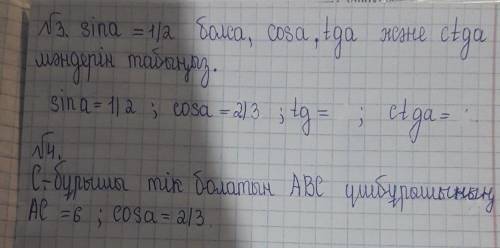 №3. sina = 1/2 болса, cosa, tga және ctga
мәндерін табыңыз.
sina = 1/2 ; cosa = 2/3 ; tg = ; ctga =
№4.
С-бұрышы тік болатын ABC үшбұрышының
AC = 6 ; cosa = 2/3.